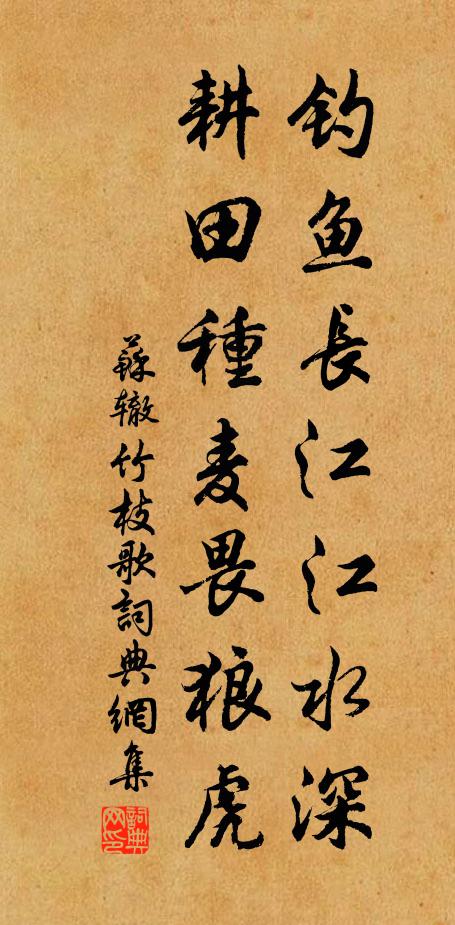 钓鱼長江江水深
耕田種麦畏狼虎
蘇辙竹枝歌詞典網集
詞典网印